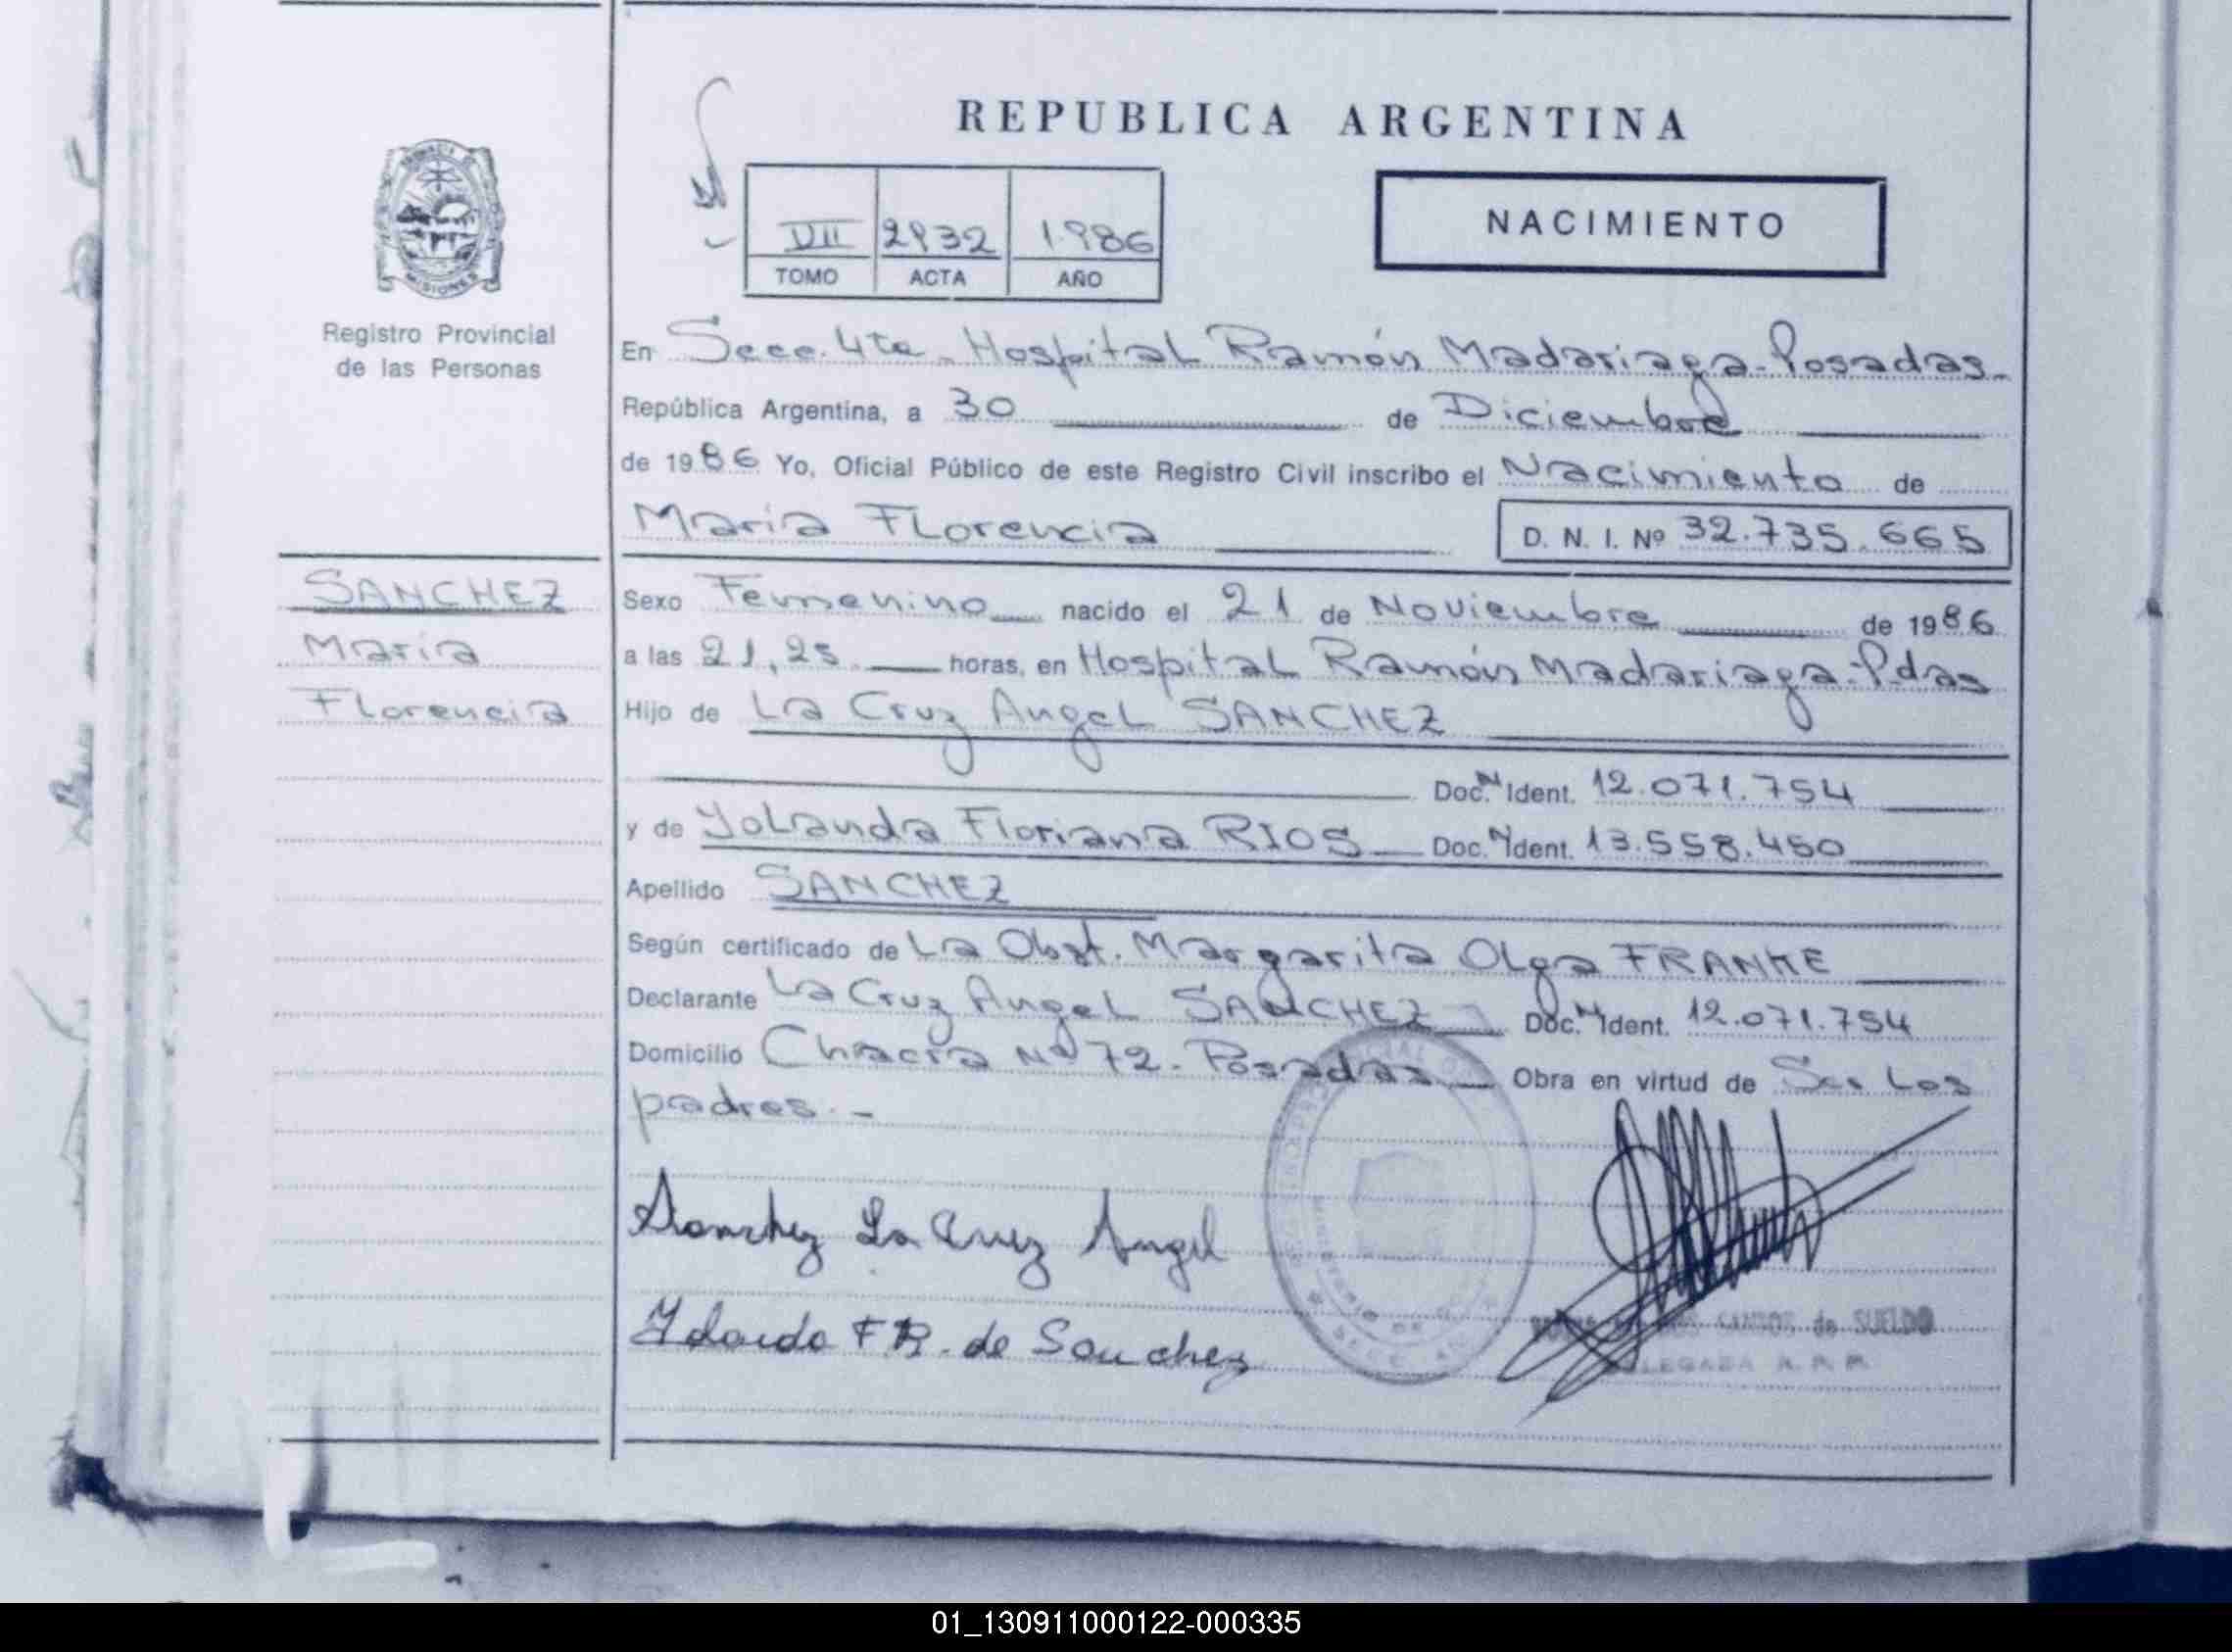 REPUBLICA ARGENTINA
VII 2932 1986
TOMO ACTA AÑO
NACIMIENTO
MISIONES
Registro Provincial
de las Personas
En Secc. 4ta. Hospital Ramón Madariaga-Posadas-
República Argentina, a 30 de Diciembre
de 1986 Yo, Oficial Público de este Registro Civil inscribo el Nacimiento de
María Florencia D. N. I. Nº 32.735.665
SANCHEZ
María
Florencia
Sexo Femenino nacido el 21 de Noviembre de 1986
a las 21,25 horas, en Hospital Ramón Madariaga-Pdas
Hijo de La Cruz Angel SANCHEZ
Doc. N Ident. 12.071.754
y de Yolanda Floriana RIOS Doc. N Ident. 13.558.450
Apellido SANCHEZ
Según certificado de La Obst. Margarita Olga FRANKE
Declarante La Cruz Angel SANCHEZ Doc. N Ident. 12.071.754
Domicilio Chacra Nº 72. Posadas Obra en virtud de Ser Los
padres.-
Sanchez La Cruz Angel
Yolanda F R. de Sanchez
SANTOS de SUELDO
01_130911000122-000335